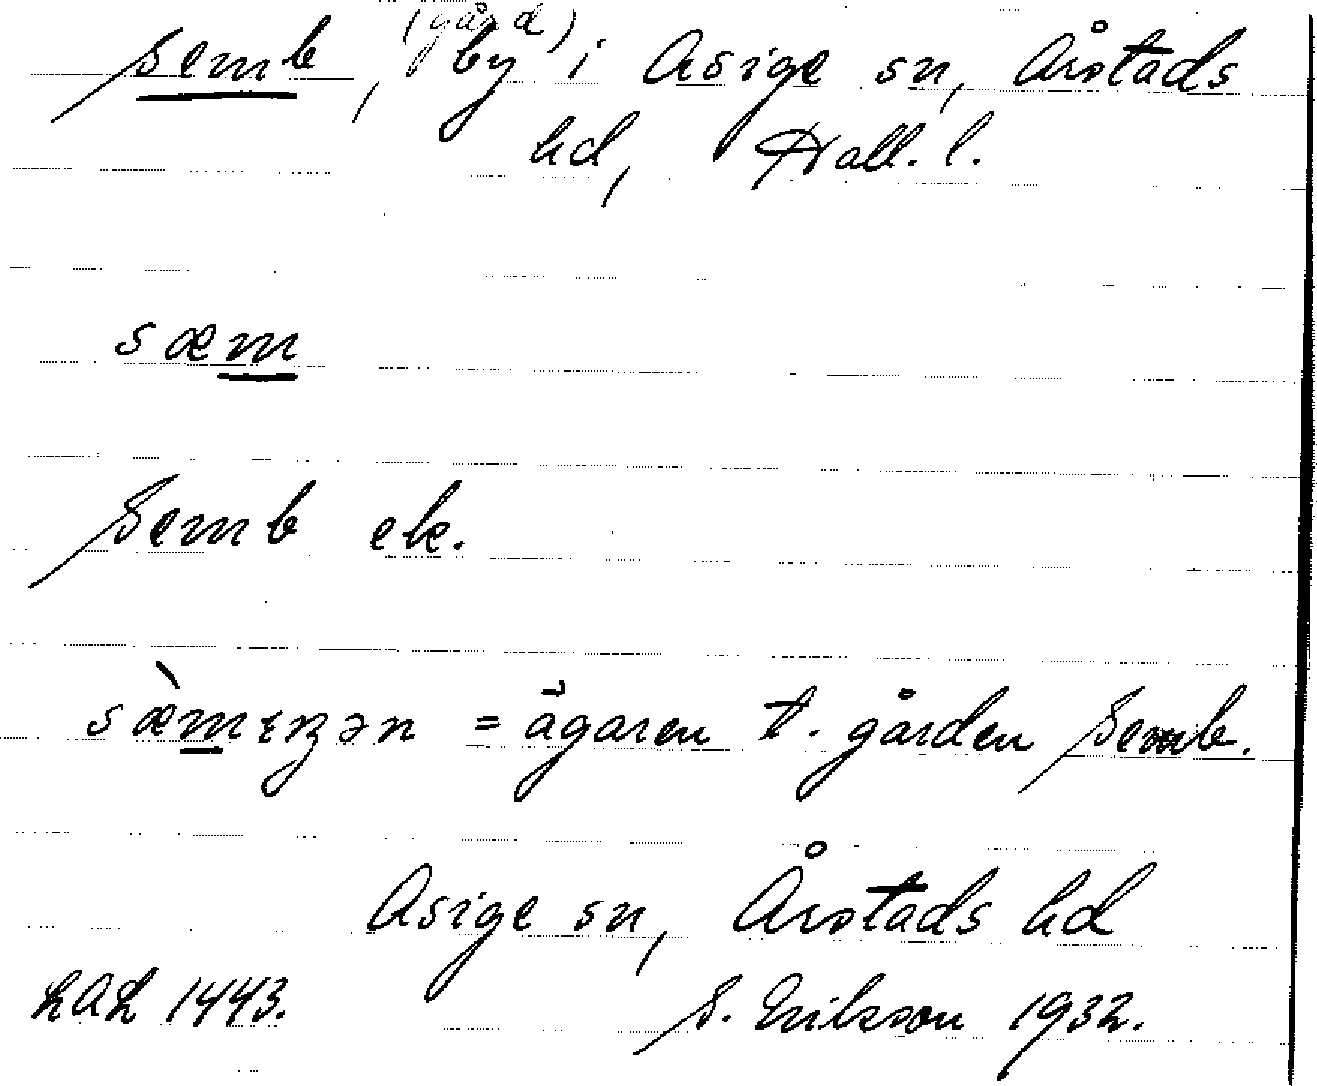 (gård)
Semb, by i Asige sn, Årstads
hd, Hall. l.
sæm
Semb ek.
sæ̀mıŋən = ägaren t. gården Semb.
Asige sn, Årstads hd
LAL 1443. S. Erikson 1932.